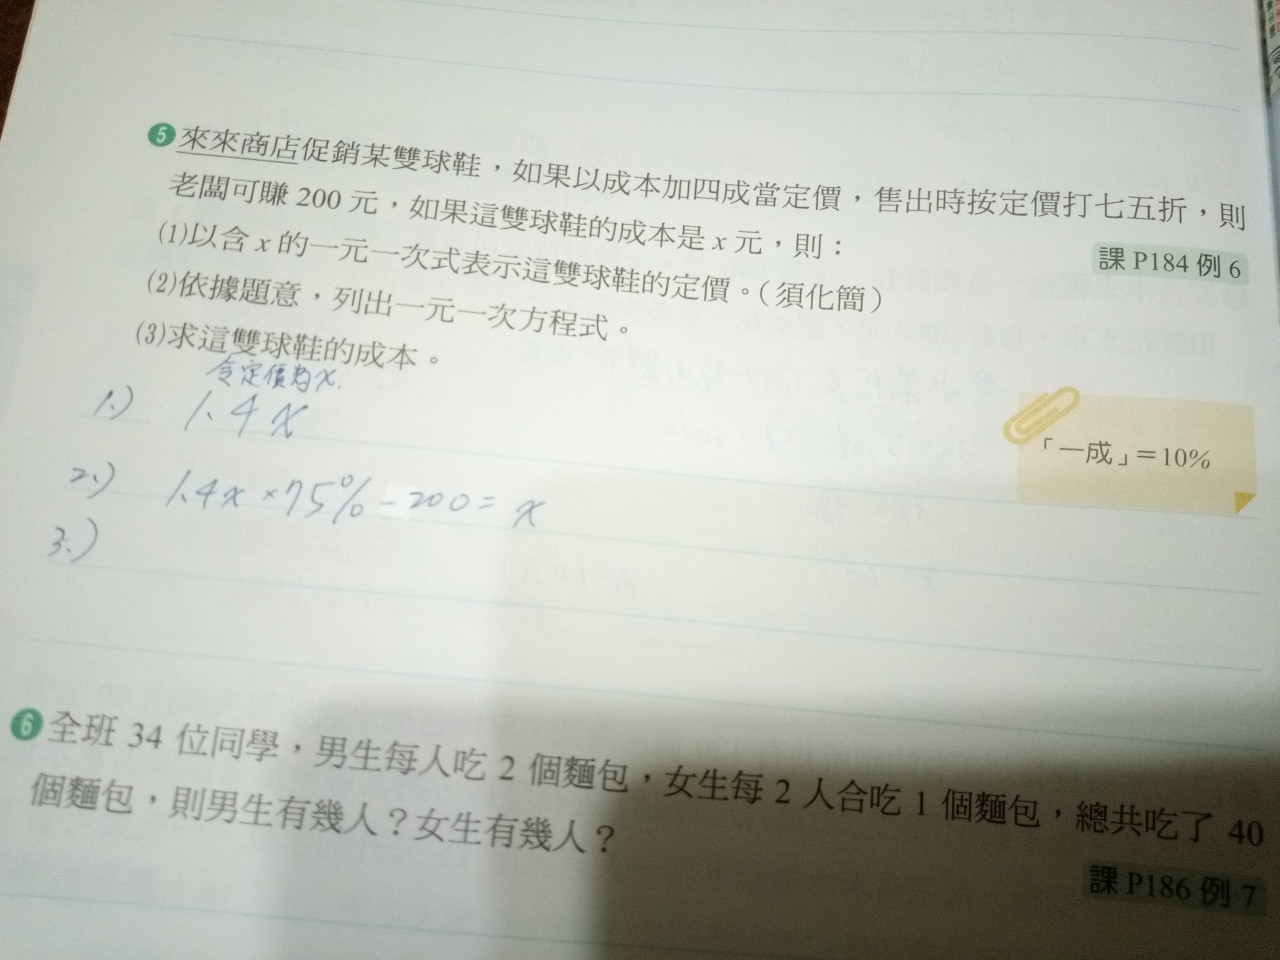 5 來來商店促銷某雙球鞋，如果以成本加四成當定價，售出時按定價打七五折，則
老闆可賺 200 元，如果這雙球鞋的成本是 x 元，則：
課 P184 例 6
(1)以含 x 的一元一次式表示這雙球鞋的定價。（須化簡）
(2)依據題意，列出一元一次方程式。
(3)求這雙球鞋的成本。
令定價為x.
1.) 1.4x
「一成」＝10%
2.) 1.4x × 75% - 200 = x
3.)
6 全班 34 位同學，男生每人吃 2 個麵包，女生每 2 人合吃 1 個麵包，總共吃了 40
個麵包，則男生有幾人？女生有幾人？
課 P186 例 7